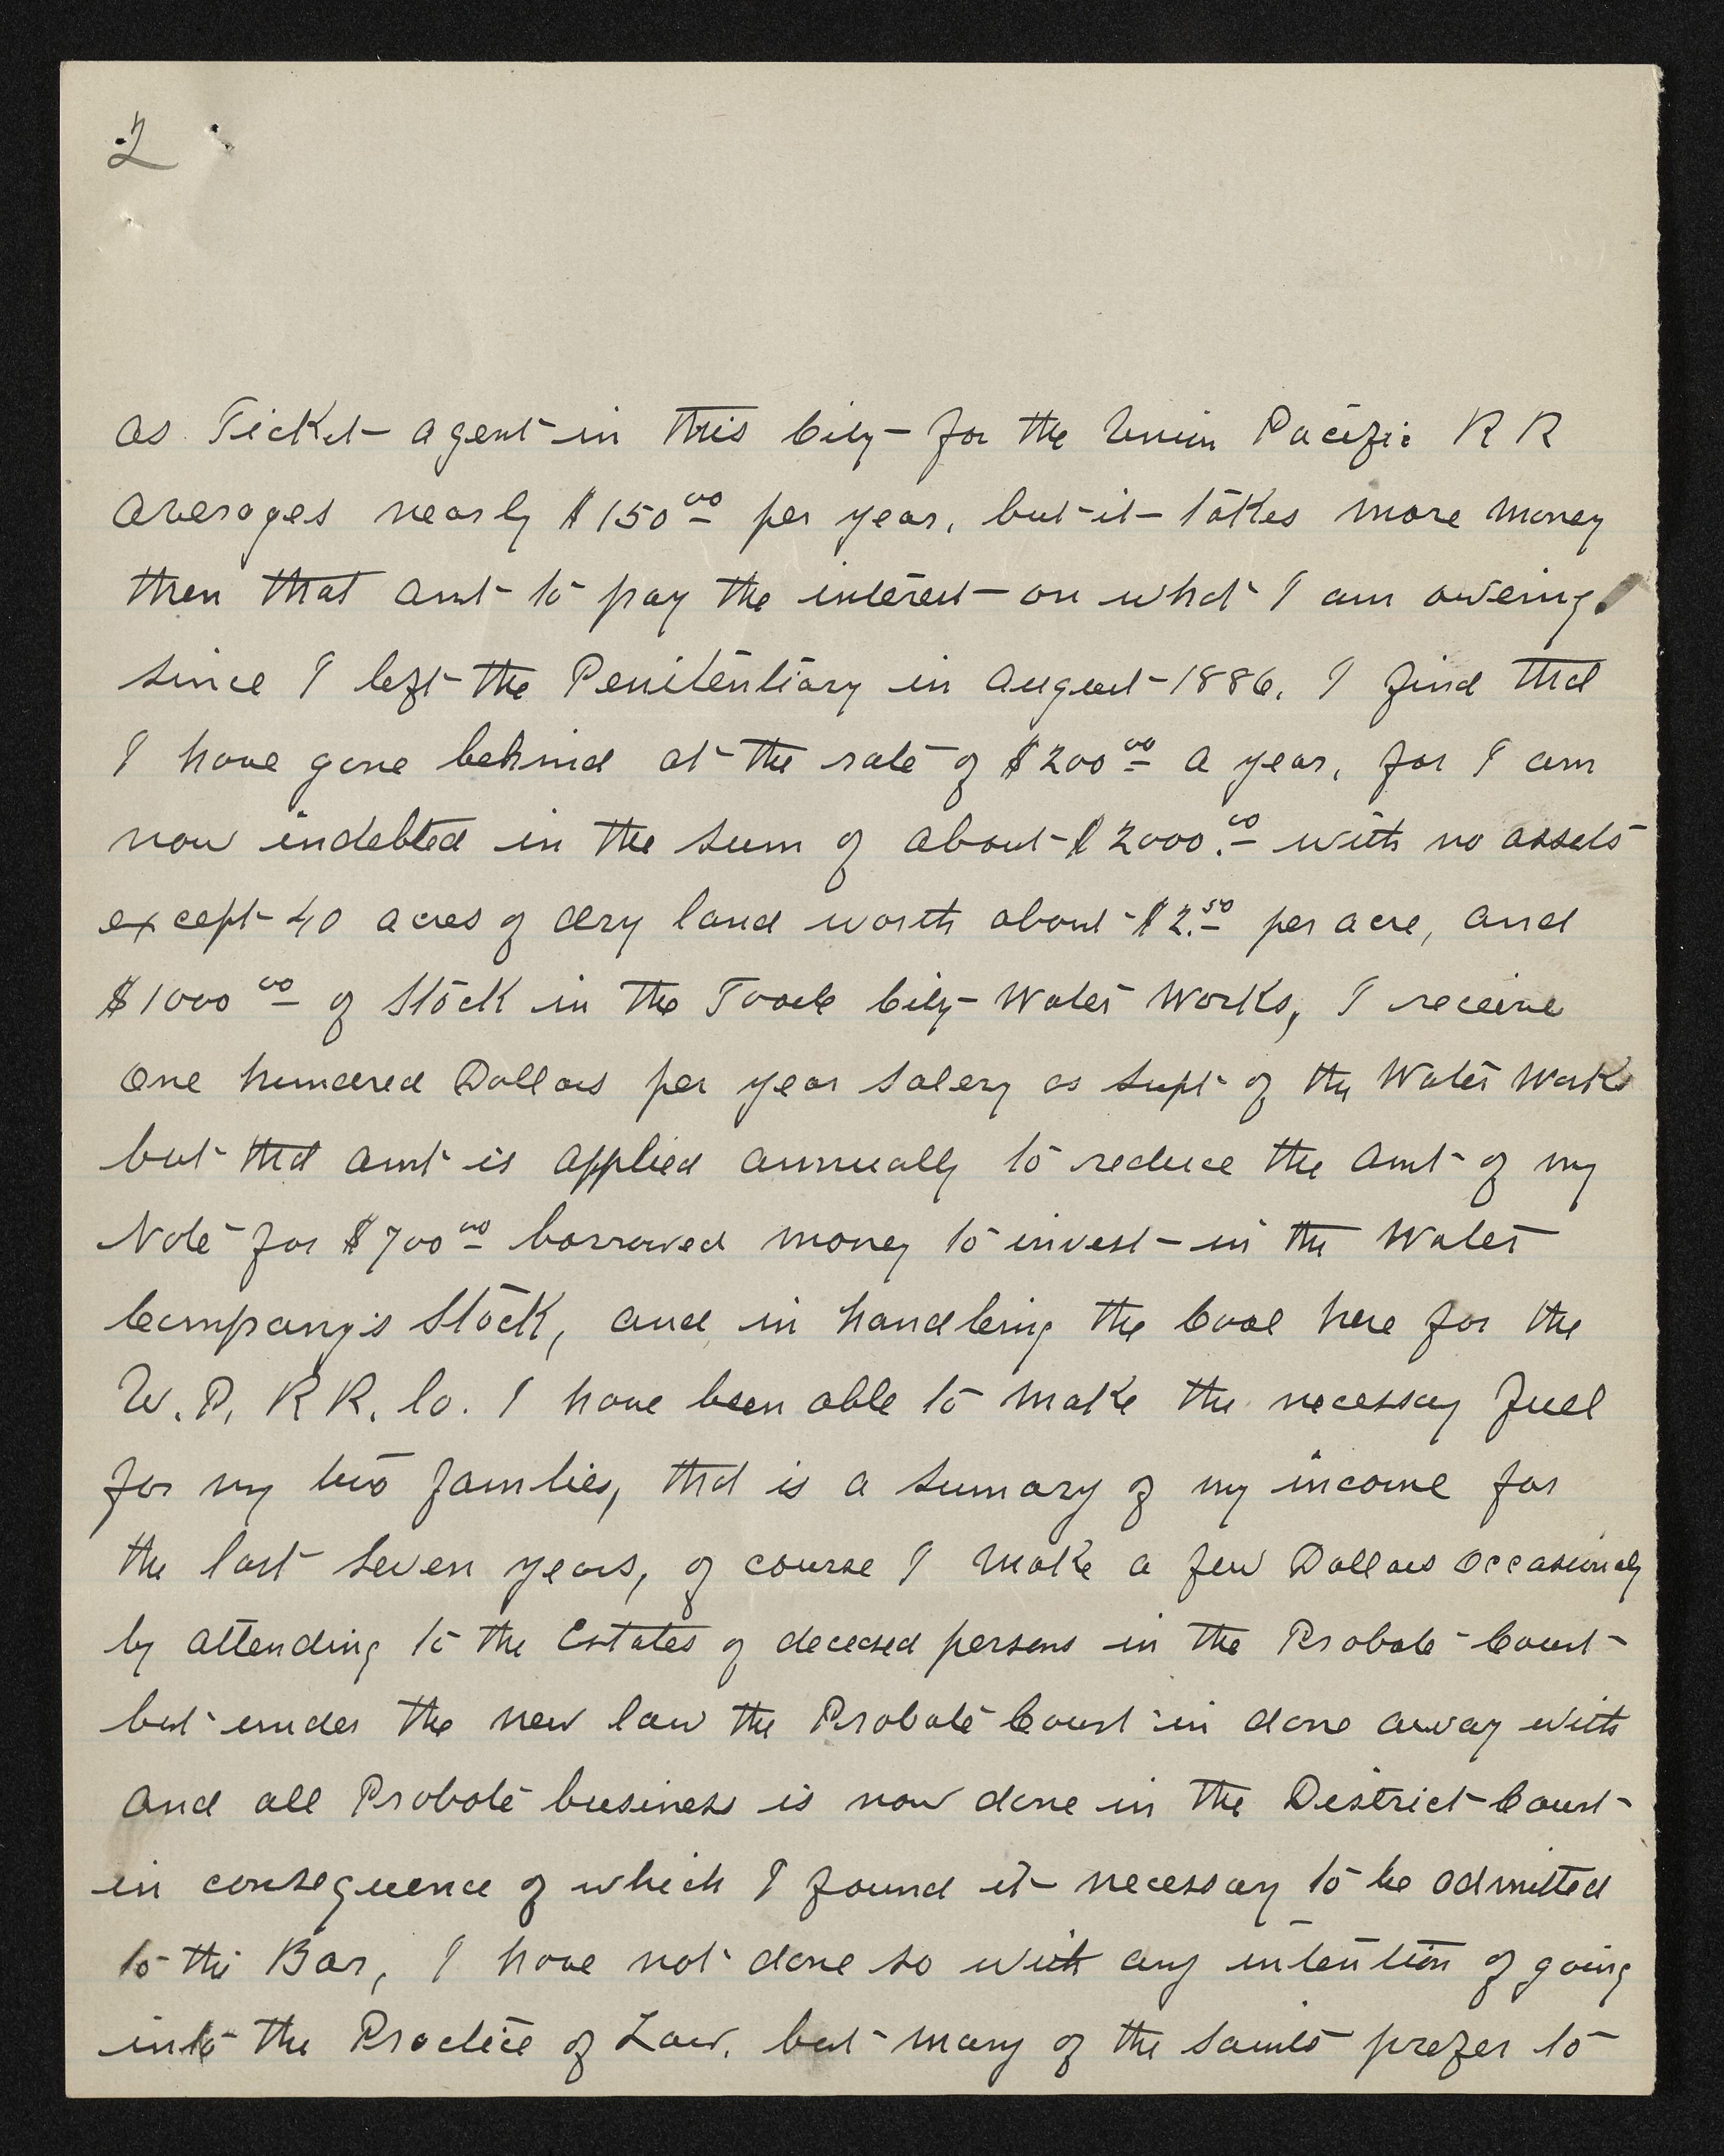 2
as Ticket agent in this City for the Union Pacific R R
averages nearly $150 00 per year, but it takes more money
then that amt to pay the interest on what I am oweing.
since I left the Penitentiary in August 1886. I find that
I have gone behind at the rate of $200 00 a year, for I am
now indebted in the sum of about $2000.00 with no assets
except 40 acres of dry land worth about $2.50 per acre, and
$1000 00 of Stock in the Tooele City Water Works, I receive
One hundred Dollars per year salery as supt of the Water Works
but that amt is applied annually to reduce the amt of my
Note for $700 00 borrowed money to invest in the Water
Company's Stock, and in handleing the Coal here for the
U. P. R R. Co. I have been able to make the necessay fuel
for my two families, that is a sumary of my income for
the last seven years, of course I make a few Dollars occasionaly
by attending to the Estates of deceased persons in the Probate Court
but under the new law the Probate Court in done away with
and all Probate business is now done in the District Court
in consequence of which I found it necessary to be admitted
to the Bar, I have not done so with any intention of going
into the Practice of Law. but many of the saints prefer to